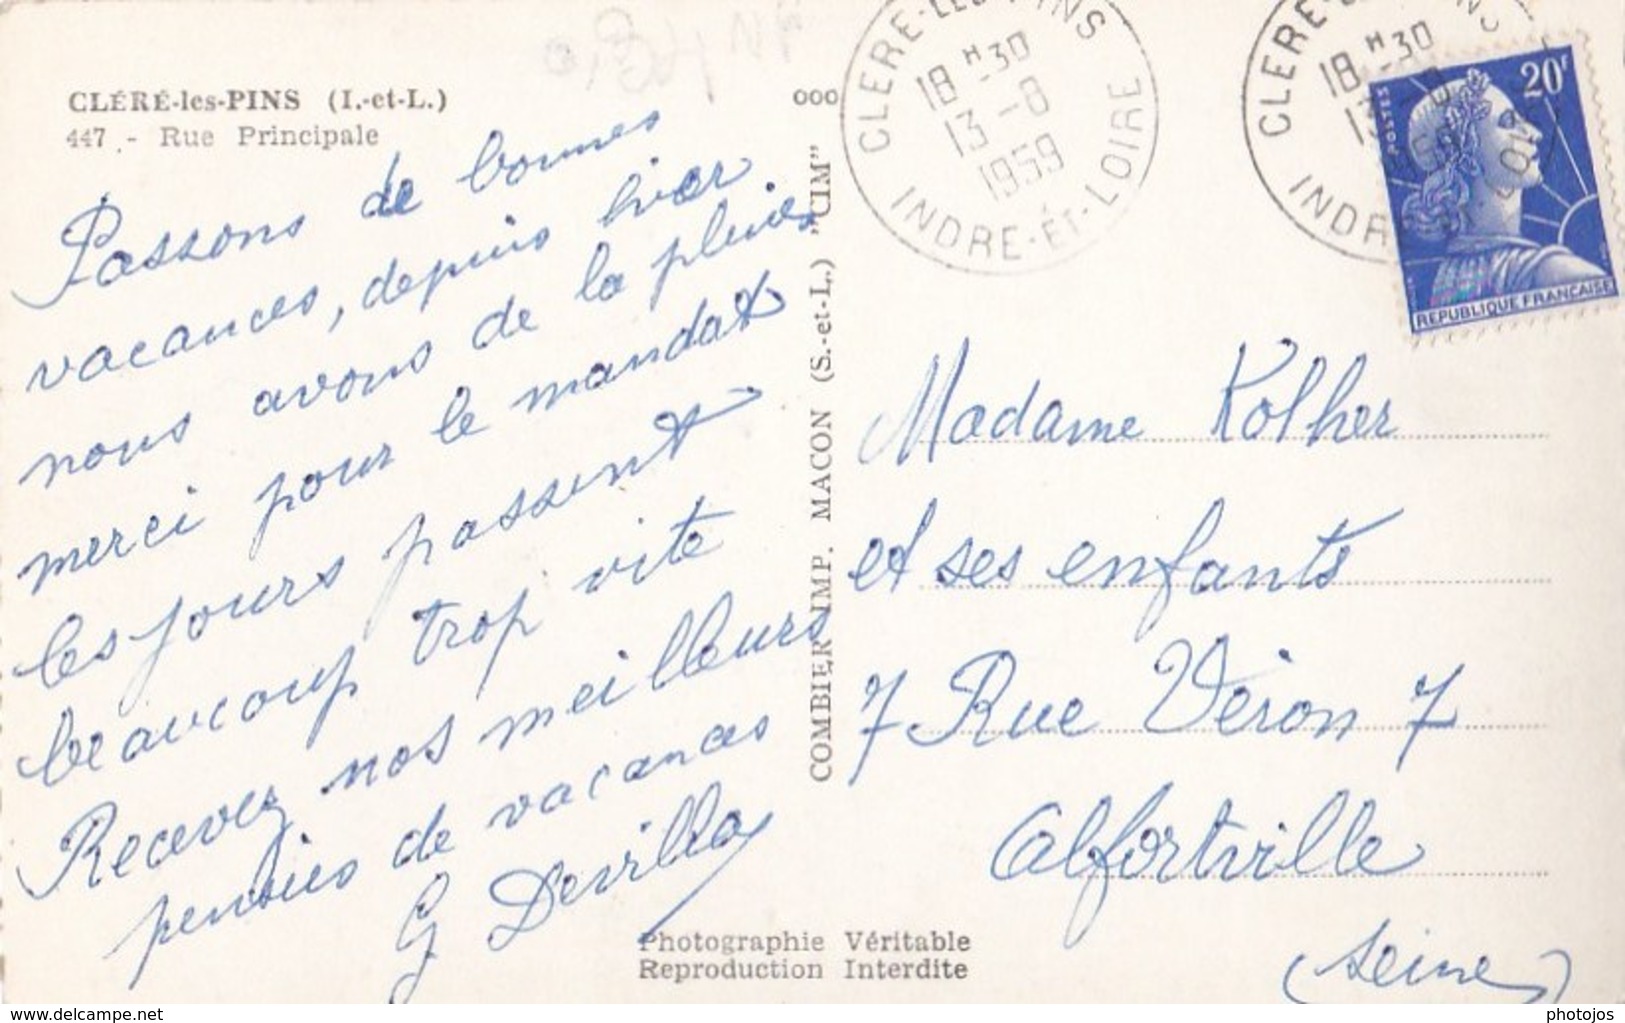 CLÉRÉ-les-PINS (I.-et-L.)
447 - Rue Principale
Passons de bonnes
vacances, depuis hier
nous avons de la pluie
merci pour le mandat
les jours passent
beaucoup trop vite
Recevez nos meilleurs
pensées de vacances
G Devilla
COMBIER IMP. MACON (S.-et-L.) "CIM"
Photographie Véritable
Reproduction Interdite
000
CLERE-LES-PINS
18 H 30
13 -8
1959
INDRE-ET-LOIRE
CLERE
18 H 30
POSTES
20F
REPUBLIQUE FRANÇAISE
Madame Kolher
et ses enfants
7 Rue Véron 7
Alfortville
(Seine)
www.delcampe.net
photojos